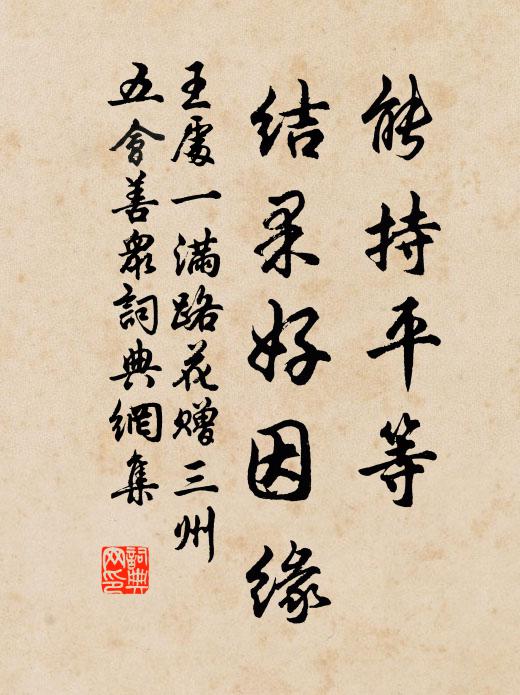 能持平等
结果好因缘
王處一满路花赠三州
五會善眾詞典網集
詞典
网印